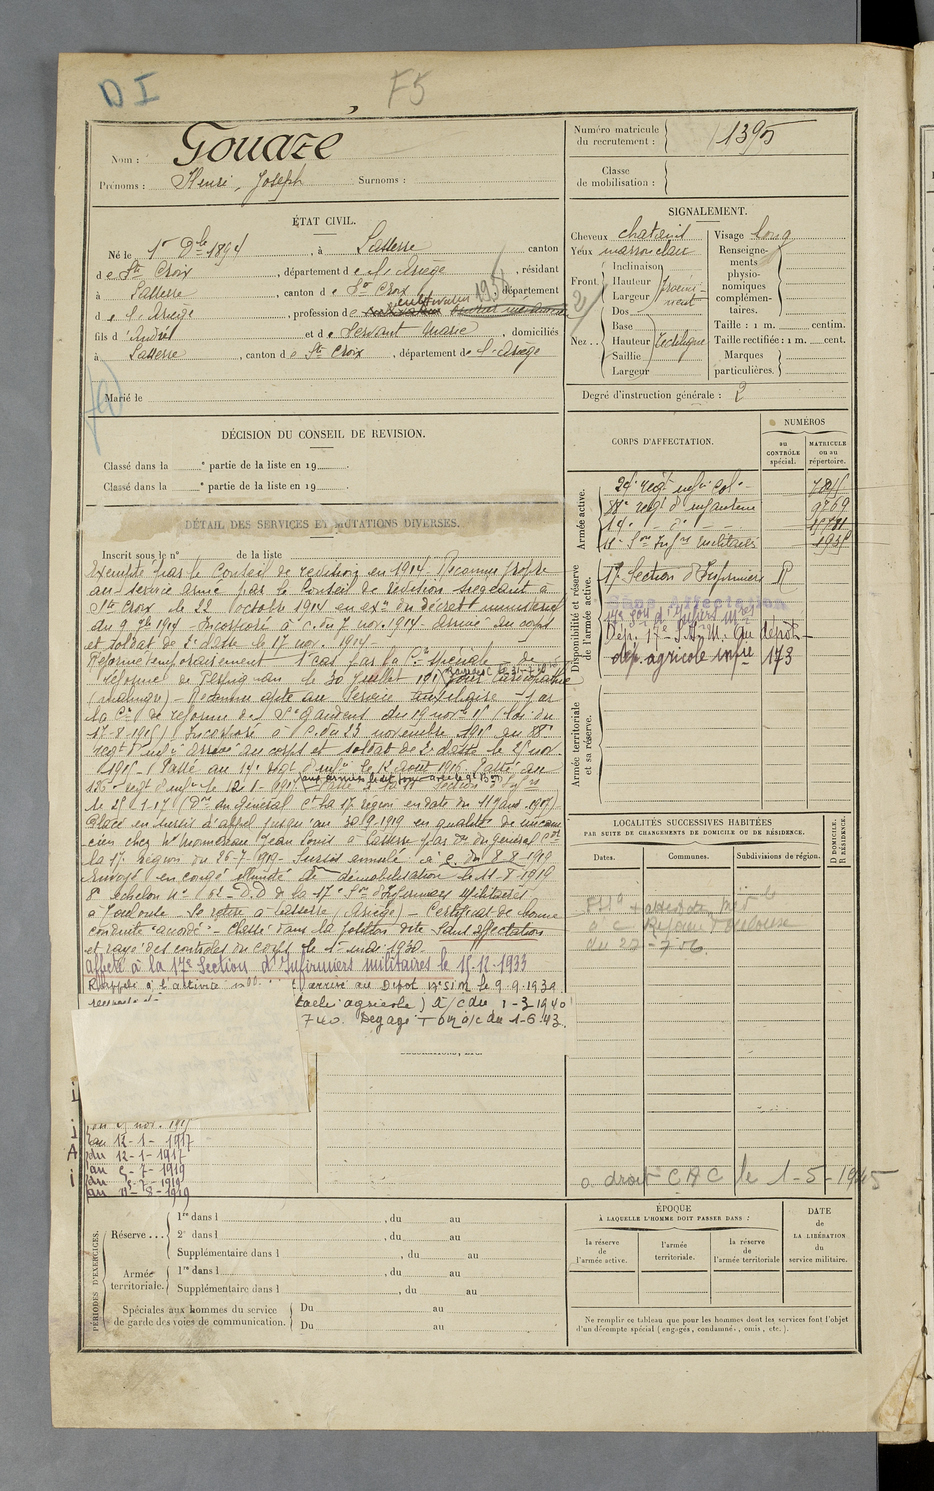 D I
F5
Nom : Gouaze
Prénoms : Henri, Joseph Surnoms :
Numéro matricule du recrutement : 1395
Classe de mobilisation :
ÉTAT CIVIL.
Né le 1er Xbre 1894, à Lasserre canton
de Ste Croix, département de l'Ariège, résidant
à Lasserre, canton de Ste Croix département
de l'Ariège, profession de cultivateur 1938
fils d'André et de Servant Marie, domiciliés
à Lasserre, canton de Ste Croix, département de l'Ariège
Marié le
SIGNALEMENT.
Cheveux chatain
Yeux marron clair
Front. Inclinaison
Hauteur
Largeur
proéminent
Nez.. Dos
Base
Hauteur
Saillie
Largeur
rectiligne
Visage long
Renseignements physionomiques complémentaires.
Taille : 1 m. centim.
Taille rectifiée : 1 m. cent.
Marques particulières.
Degré d'instruction générale : 2
DÉCISION DU CONSEIL DE REVISION.
Classé dans la e partie de la liste en 19
Classé dans la e partie de la liste en 19
DÉTAIL DES SERVICES ET MUTATIONS DIVERSES.
Inscrit sous le n° de la liste
Exempté par le Conseil de revision en 1914. Reconnu propre
au service armé par le Conseil de revision siégeant à
Ste Croix le 22 octobre 1914 en exon du décret ministériel
du 9 7bre 1914. Incorporé à c. du 7 nov. 1914. Arrivé au corps
et soldat de 2e classe le 17 nov. 1914.
Réformé temporairement 1e cat. par la Con spéciale de
réforme de Perpignan le 30 juillet 191
Reconnu apte au service auxiliaire par
la Con de réforme de St Gaudens du 19 novre 15 (Loi du
17-8-1915) Incorporé à c. du 23 novembre 1915 au 88e
regt d'infie arrivé au corps et soldat de 2e classe le 25 nov.
1915. Passé au 14e regt d'infie le 12 août 1916. Passé au
135e regt d'infie le 12-1-1917. Passé à la Section d'Infrs
le 25-1-17 (Don du Général Ct la 17e région en date du 11 janv. 1917)
Placé en sursis d'appel jusqu'au 30-9-1919 en qualité de
chez Mr Jean Louis à Lasserre par Don du général Ct
la 17e région du 26-7-1919. Sursis annulé à c. du 8-8-1919
Envoyé en congé illimité de démobilisation le 11-8-1919
8e échelon N° D.D de la 17e Son d'Infirmiers Militaires
à Toulouse. Se retire à Lasserre (Ariège). Certificat de bonne
conduite "accordé". Classé dans la position dite Sans affectation
et rayé des contrôles du corps le 1er mai 1930.
Affecté à la 17e Section d'Infirmiers militaires le 15.12.1933
Rappelé à l'activité arrivé au Dépôt 17e S.I.M. le 9.9.1939
tache agricole) à/c du 1-3 1940
740. Dégagé T om à/c du 1-6-43.
nov. 1915
au 12-1-1917
du 12-1-1917
au 5-7-1919
du 5-7-1919
au 11-8-1919
CORPS D'AFFECTATION.
NUMÉROS
au CONTRÔLE spécial.
MATRICULE ou au répertoire.
Armée active.
24e regt infie Col.
88e regt d'infanterie 9769
14e do
17e Son Infrs Militaires
Disponibilité et réserve de l'armée active.
17e Section d'Infirmiers R
Sans Affectation
17e Son d'Infirs Mres
Dép. 17e S.I.M. au dépôt
dép. agricole infre 173
Armée territoriale et sa réserve.
LOCALITÉS SUCCESSIVES HABITÉES
PAR SUITE DE CHANGEMENTS DE DOMICILE OU DE RÉSIDENCE.
Dates. Communes. Subdivisions de région.
D DOMICILE. R RÉSIDENCE.
à c Réforme Toulouse
du 27-7-
a droit CAC le 1-5-1945
PÉRIODES D'EXERCICES.
Réserve... 1re dans l , du au
2e dans l , du au
Supplémentaire dans l , du au
Armée territoriale. 1re dans l , du au
Supplémentaire dans l , du au
Spéciales aux hommes du service de garde des voies de communication. Du au
Du au
ÉPOQUE
À LAQUELLE L'HOMME DOIT PASSER DANS :
la réserve de l'armée active.
l'armée territoriale.
la réserve de l'armée territoriale
DATE de LA LIBÉRATION du service militaire.
Ne remplir ce tableau que pour les hommes dont les services font l'objet
d'un décompte spécial (engagés, condamné-, omis, etc.).